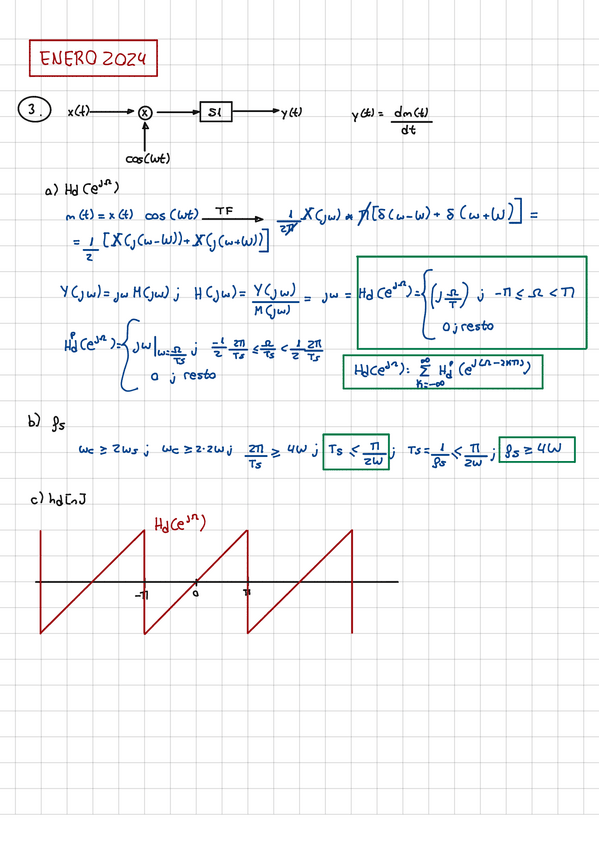 ENERO 2024
3. x(t) x S1 y(t) y(t) = dm(t)/dt
cos(Wt)
a) Hd(e^jΩ)
m(t) = x(t) cos(Wt) TF → 1/2π X(jω) * π[δ(ω-W) + δ(ω+W)] =
= 1/2 [X(j(ω-W)) + X(j(ω+W))]
Y(jω) = jω M(jω) ; H(jω) = Y(jω)/M(jω) = jω = Hd(e^jΩ) = { (j Ω/T) ; -π ≤ Ω < π
0 ; resto
Hd^p(e^jΩ) = { jω|ω=Ω/Ts ; -1/2 2π/Ts ≤ Ω/Ts < 1/2 2π/Ts
0 ; resto
Hd(e^jΩ): Σ k=-∞ ∞ Hd^p (e^j(Ω-2kπ))
b) fs
ωc ≥ 2ωs ; ωc ≥ 2·2W ; 2π/Ts ≥ 4W ; Ts ≤ π/2W ; Ts = 1/fs ≤ π/2W ; fs ≥ 4W
c) hd[n]
Hd(e^jΩ)
-π 0 π